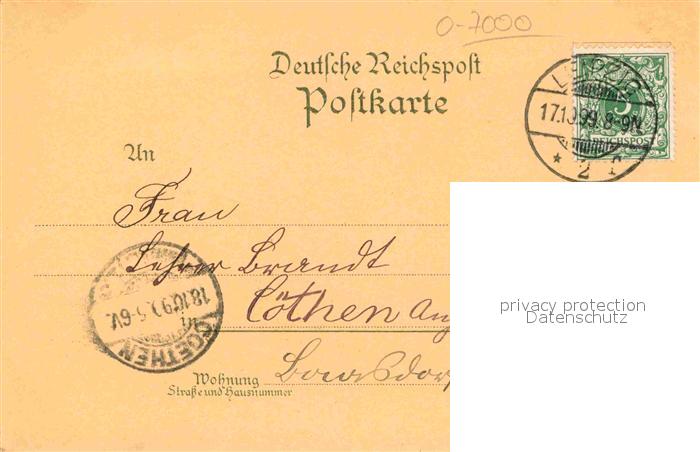 0-7000
Deutsche Reichspost
Postkarte
LEIPZIG
17.10.99. 8-9N.
* 2 f
5
REICHSPOST
An
Frau
Lehrer Brandt
Cöthen
18.10.99. 5-6V.
COETHEN
Wohnung
Straße und Hausnummer
privacy protection
Datenschutz